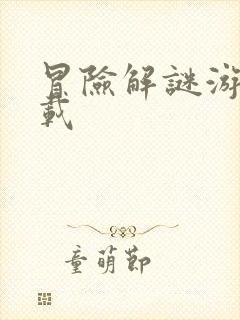 冒險解謎游
載
童萌節